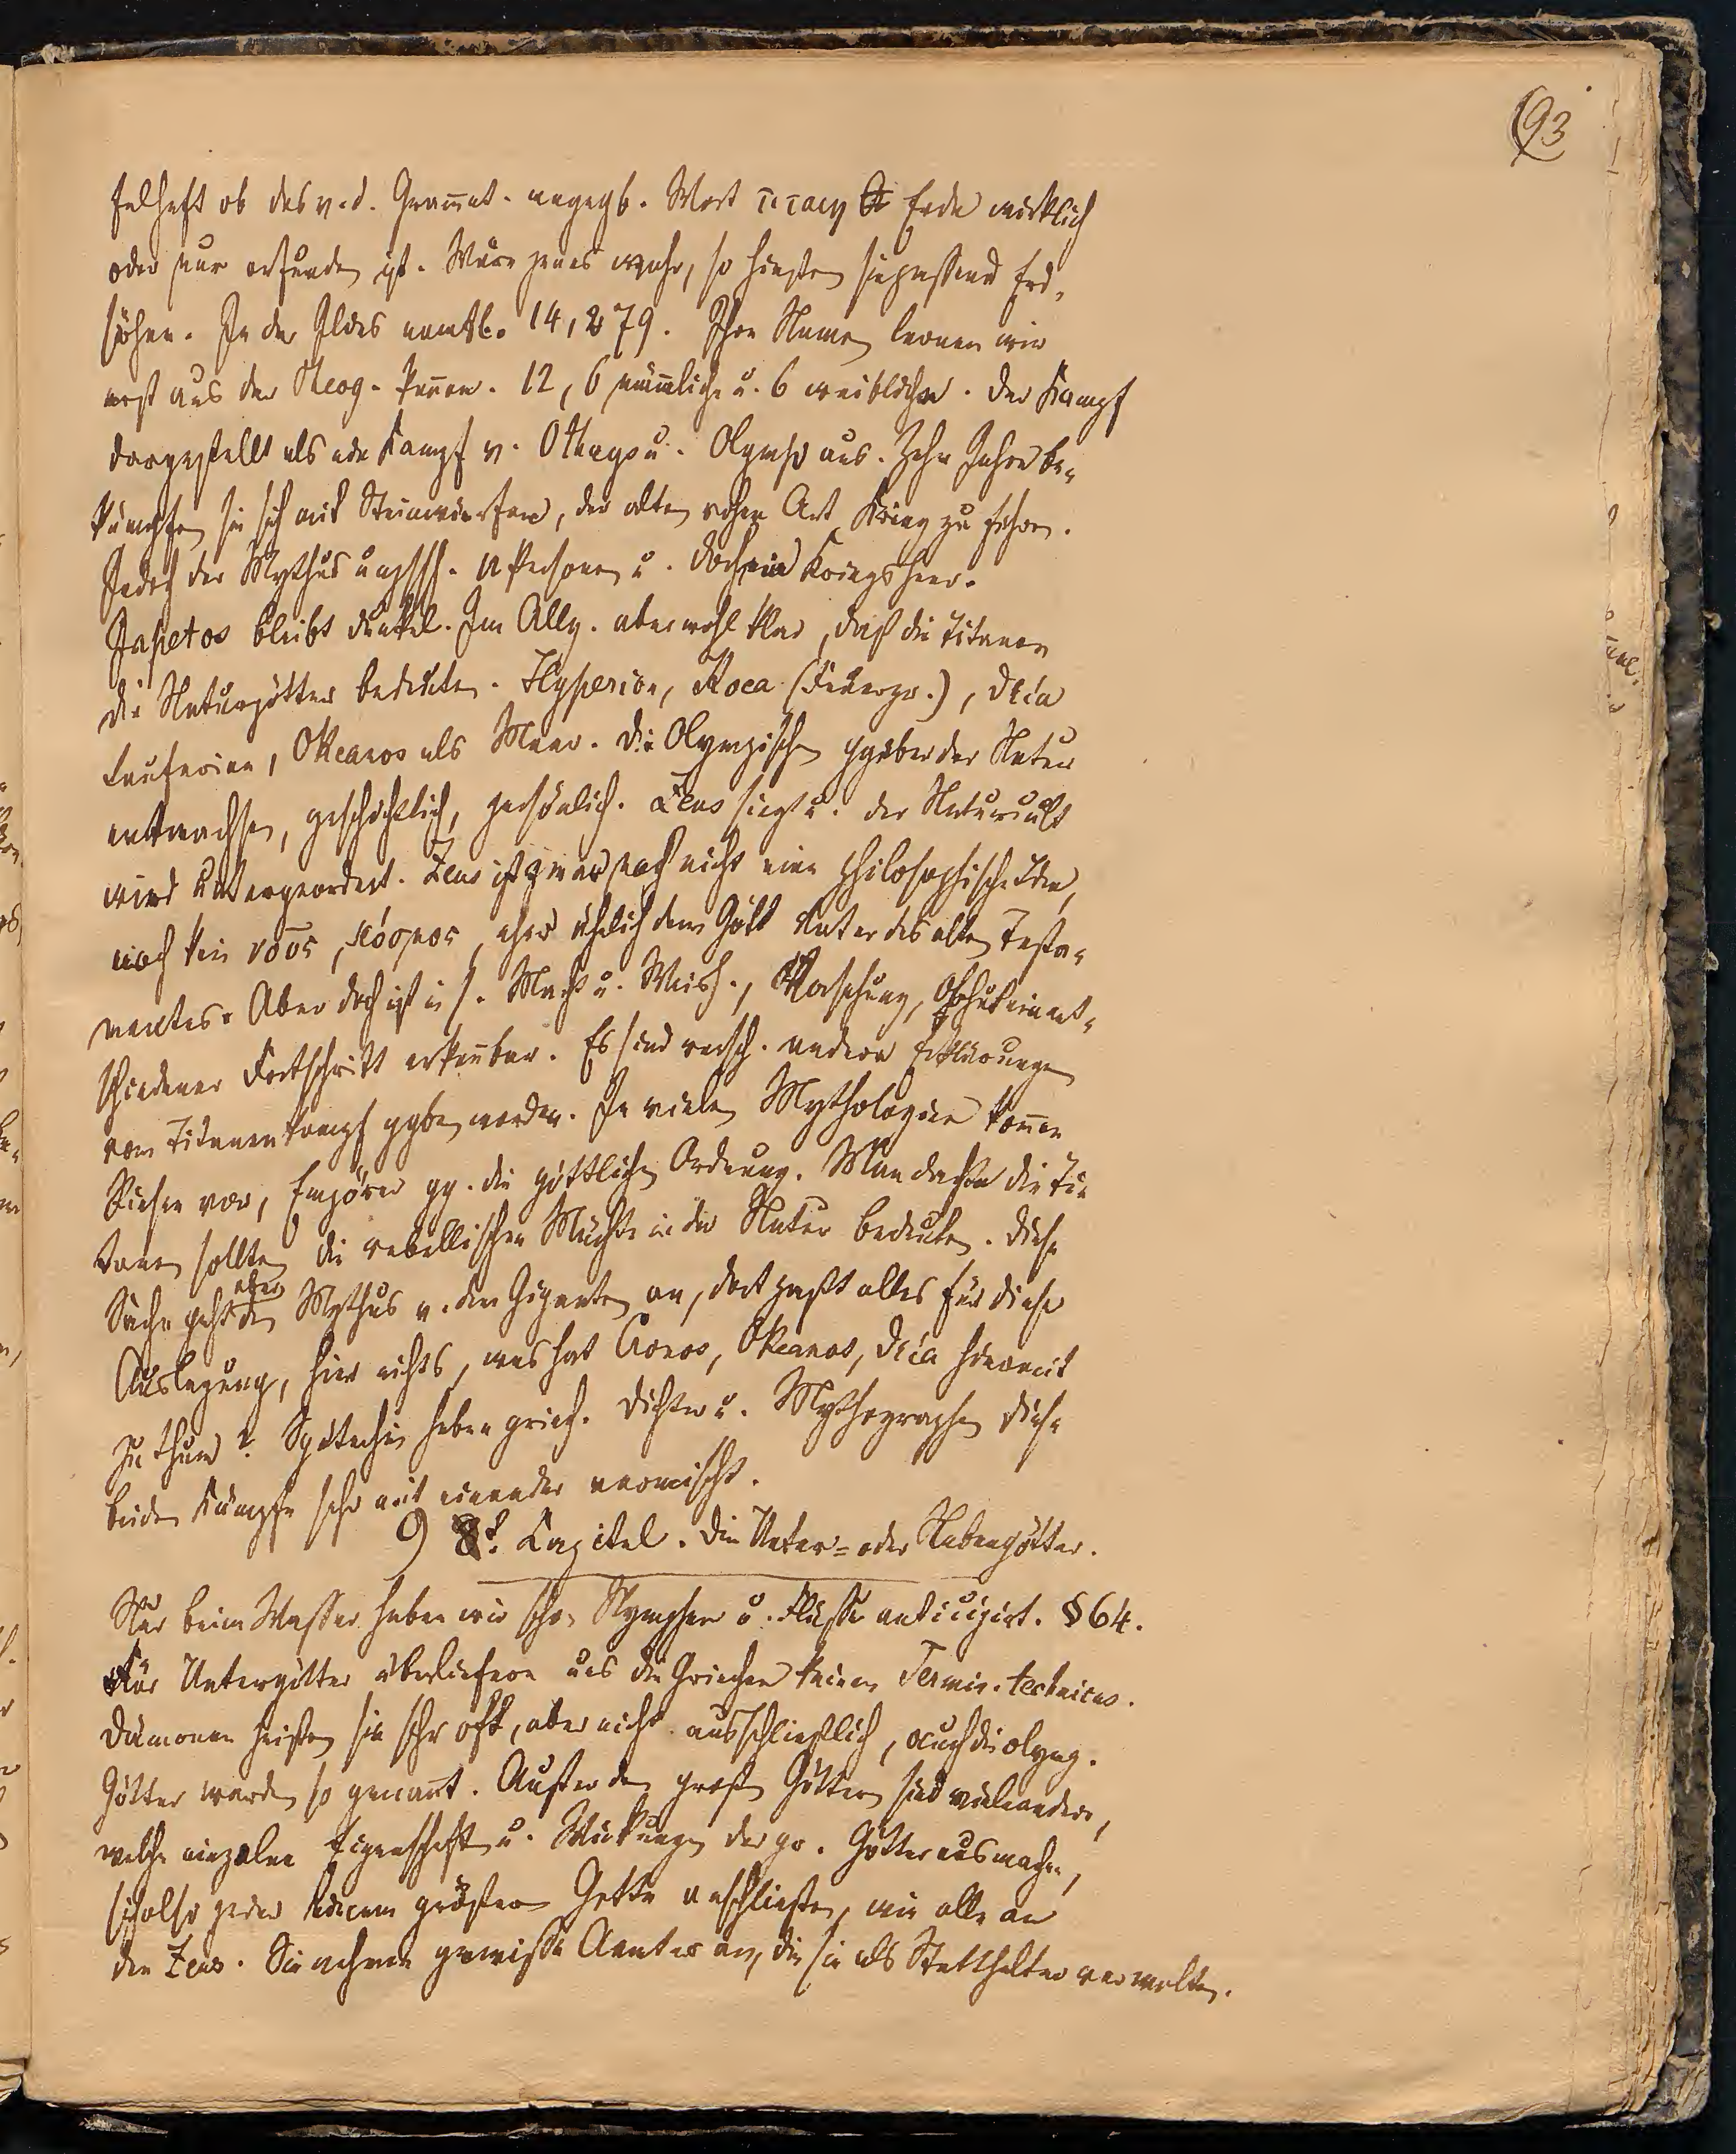 93
felhaft ob das v. d. Grammat. angegb. Wort τιταιη Erde wirklich
oder nur erfunden ist. Wäre jenes wahr, so hießen sie passend Erd-
söhne. In der Ilias namtl. 14, 279. Ihre Namen lernen wir
erst aus der Theog. kennen. 12, 6 männliche u. 6 weibliche. Der Kampf
dargestellt als ein Kampf v. Othrys u. Olymp aus. Zehn Jahre be-
kämpfen sie sich mit Steinwürfen, der alten rohen Art Krieg zu führen.
Jedoch der Mythus Personen u. doch ein Kriegsheer.
Japetos bleibt dunkel. Im Allg. aber wohl klar, daß die Titanen
die Naturgötter bedeuten. Hyperion, Phoea (Feuerp.), Theia
Okeanos als Meer. Die Olympischen ggüber der Natur
entwachsen, geschichtlich, persönlich. Zeus siegt u. der Naturcult
wird untergeordnet. Zeus ist zwar noch nicht eine philosophische Idee,
noch kein νοῦς, κόσμος, eher ähnlich dem Gott Vater des alten Testa-
mentes. Aber doch ist in s. Macht u. Weish., Vorsehung, Obhut ein ent-
schiedener Fortschritt erkennbar. Es sind versch. andere Erklärungen
vom Titanenkampf ggben worden. In vielen Mythologien kommen
Riesen vor, Empörer gg. die göttliche Ordnung. Man dachte die Ti-
tanen sollten die rebellischen Mächte in der Natur bedeuten. Diese
Sache geht aber den Mythus v. den Giganten an, dort paßt alles für diese
Auslegung, hier nichts, was hat Cronos, Okeanos, Theia hiermit
zu thun? Späterhin haben griech. Dichter u. Mythographen diese
beiden Kämpfe sehr mit einander vermischt.
9 8t. Capitel. Die Unter- oder Nebengötter.
Nur beim Wasser haben wir schon Nymphen u. Flüsse anticipirt. § 64.
Für Untergötter überliefern uns die Griechen keinen Termin. technicus.
Dämonen heißen sie sehr oft, aber nicht ausschließlich, auch die olymp.
Götter werden so genannt. Außer den großen Göttern sind viele andere,
welche einzelne Eigenschaften u. Wirkungen der gr. Götter ausmachen,
sich also jeder einem größern Gotte anschließen, wie alle an
den Zeus. Sie nehmen gewisse Aemter an, die sie als Statthalter verwalten.